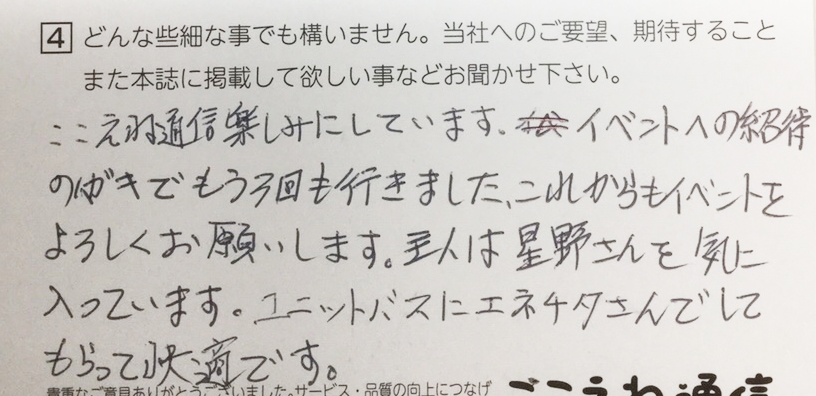 4 どんな些細な事でも構いません。当社へのご要望、期待すること
また本誌に掲載して欲しい事などお聞かせ下さい。
ここえね通信楽しみにしています。イベントへの紹待
のハガキでもう3回も行きました、これからもイベントを
よろしくお願いします。主人は星野さんを気に
入っています。ユニットバスにエネチタさんでして
もらって快適です。
貴重なご意見ありがとうございました。サービス・品質の向上につなげ
ここえね通信